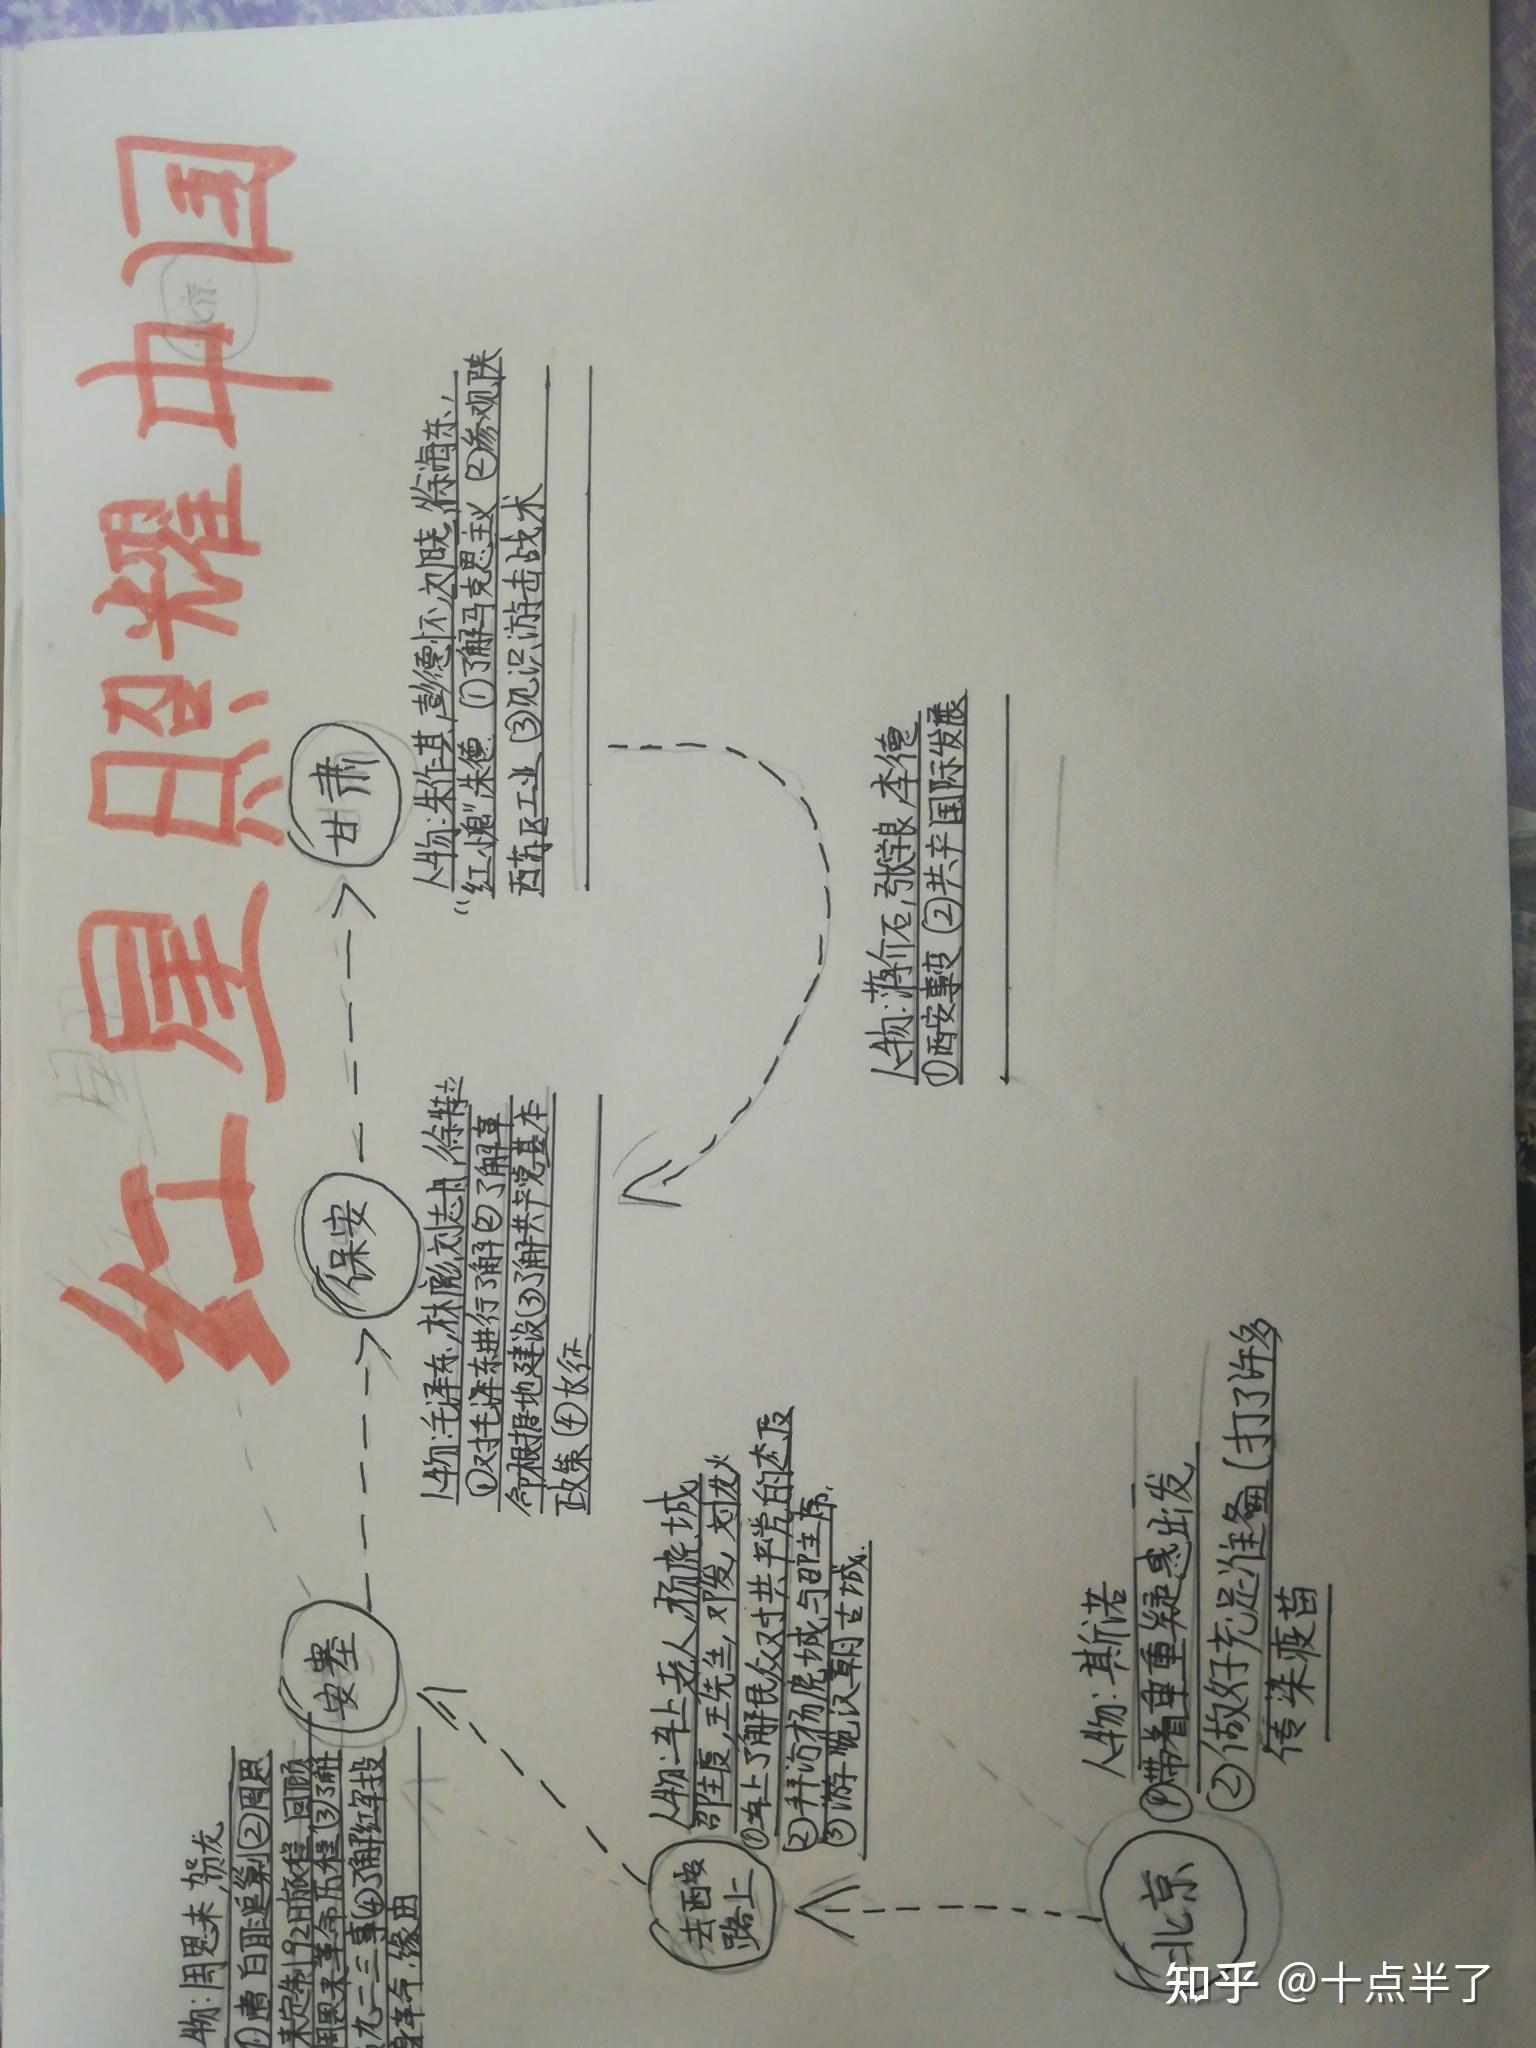 红星照耀中国
北京
人物:斯诺
①带着重重疑惑出发
②做好充足准备(打了许多
传染疫苗
去西安
路上
人物:车上老人,杨虎城
邵主度,王先生,邓发,刘龙火
①车上了解民众对共产党的态度
②拜访杨虎城与邵主席,
③游览汉朝古城.
安塞
物:周恩来,贺龙
①遭白匪追剿②周恩
来定制92日旅程 回顾
周恩来革命历程③了解
九二三事④了解红军投
身革命缘由
保安
人物:毛泽东,林彪,刘志丹,徐特立
①对毛泽东进行了解②了解革
命根据地建设③了解共产党基本
政策④长征
甘肃
人物:朱作其,彭德怀,刘晓,徐海东,
“红小鬼”,朱德 ①了解马克思主义 ②参观陕
西苏区工业 ③见识游击战术
人物:蒋介石,张学良,李德
①西安事变 ②共产国际发展
知乎 @十点半了